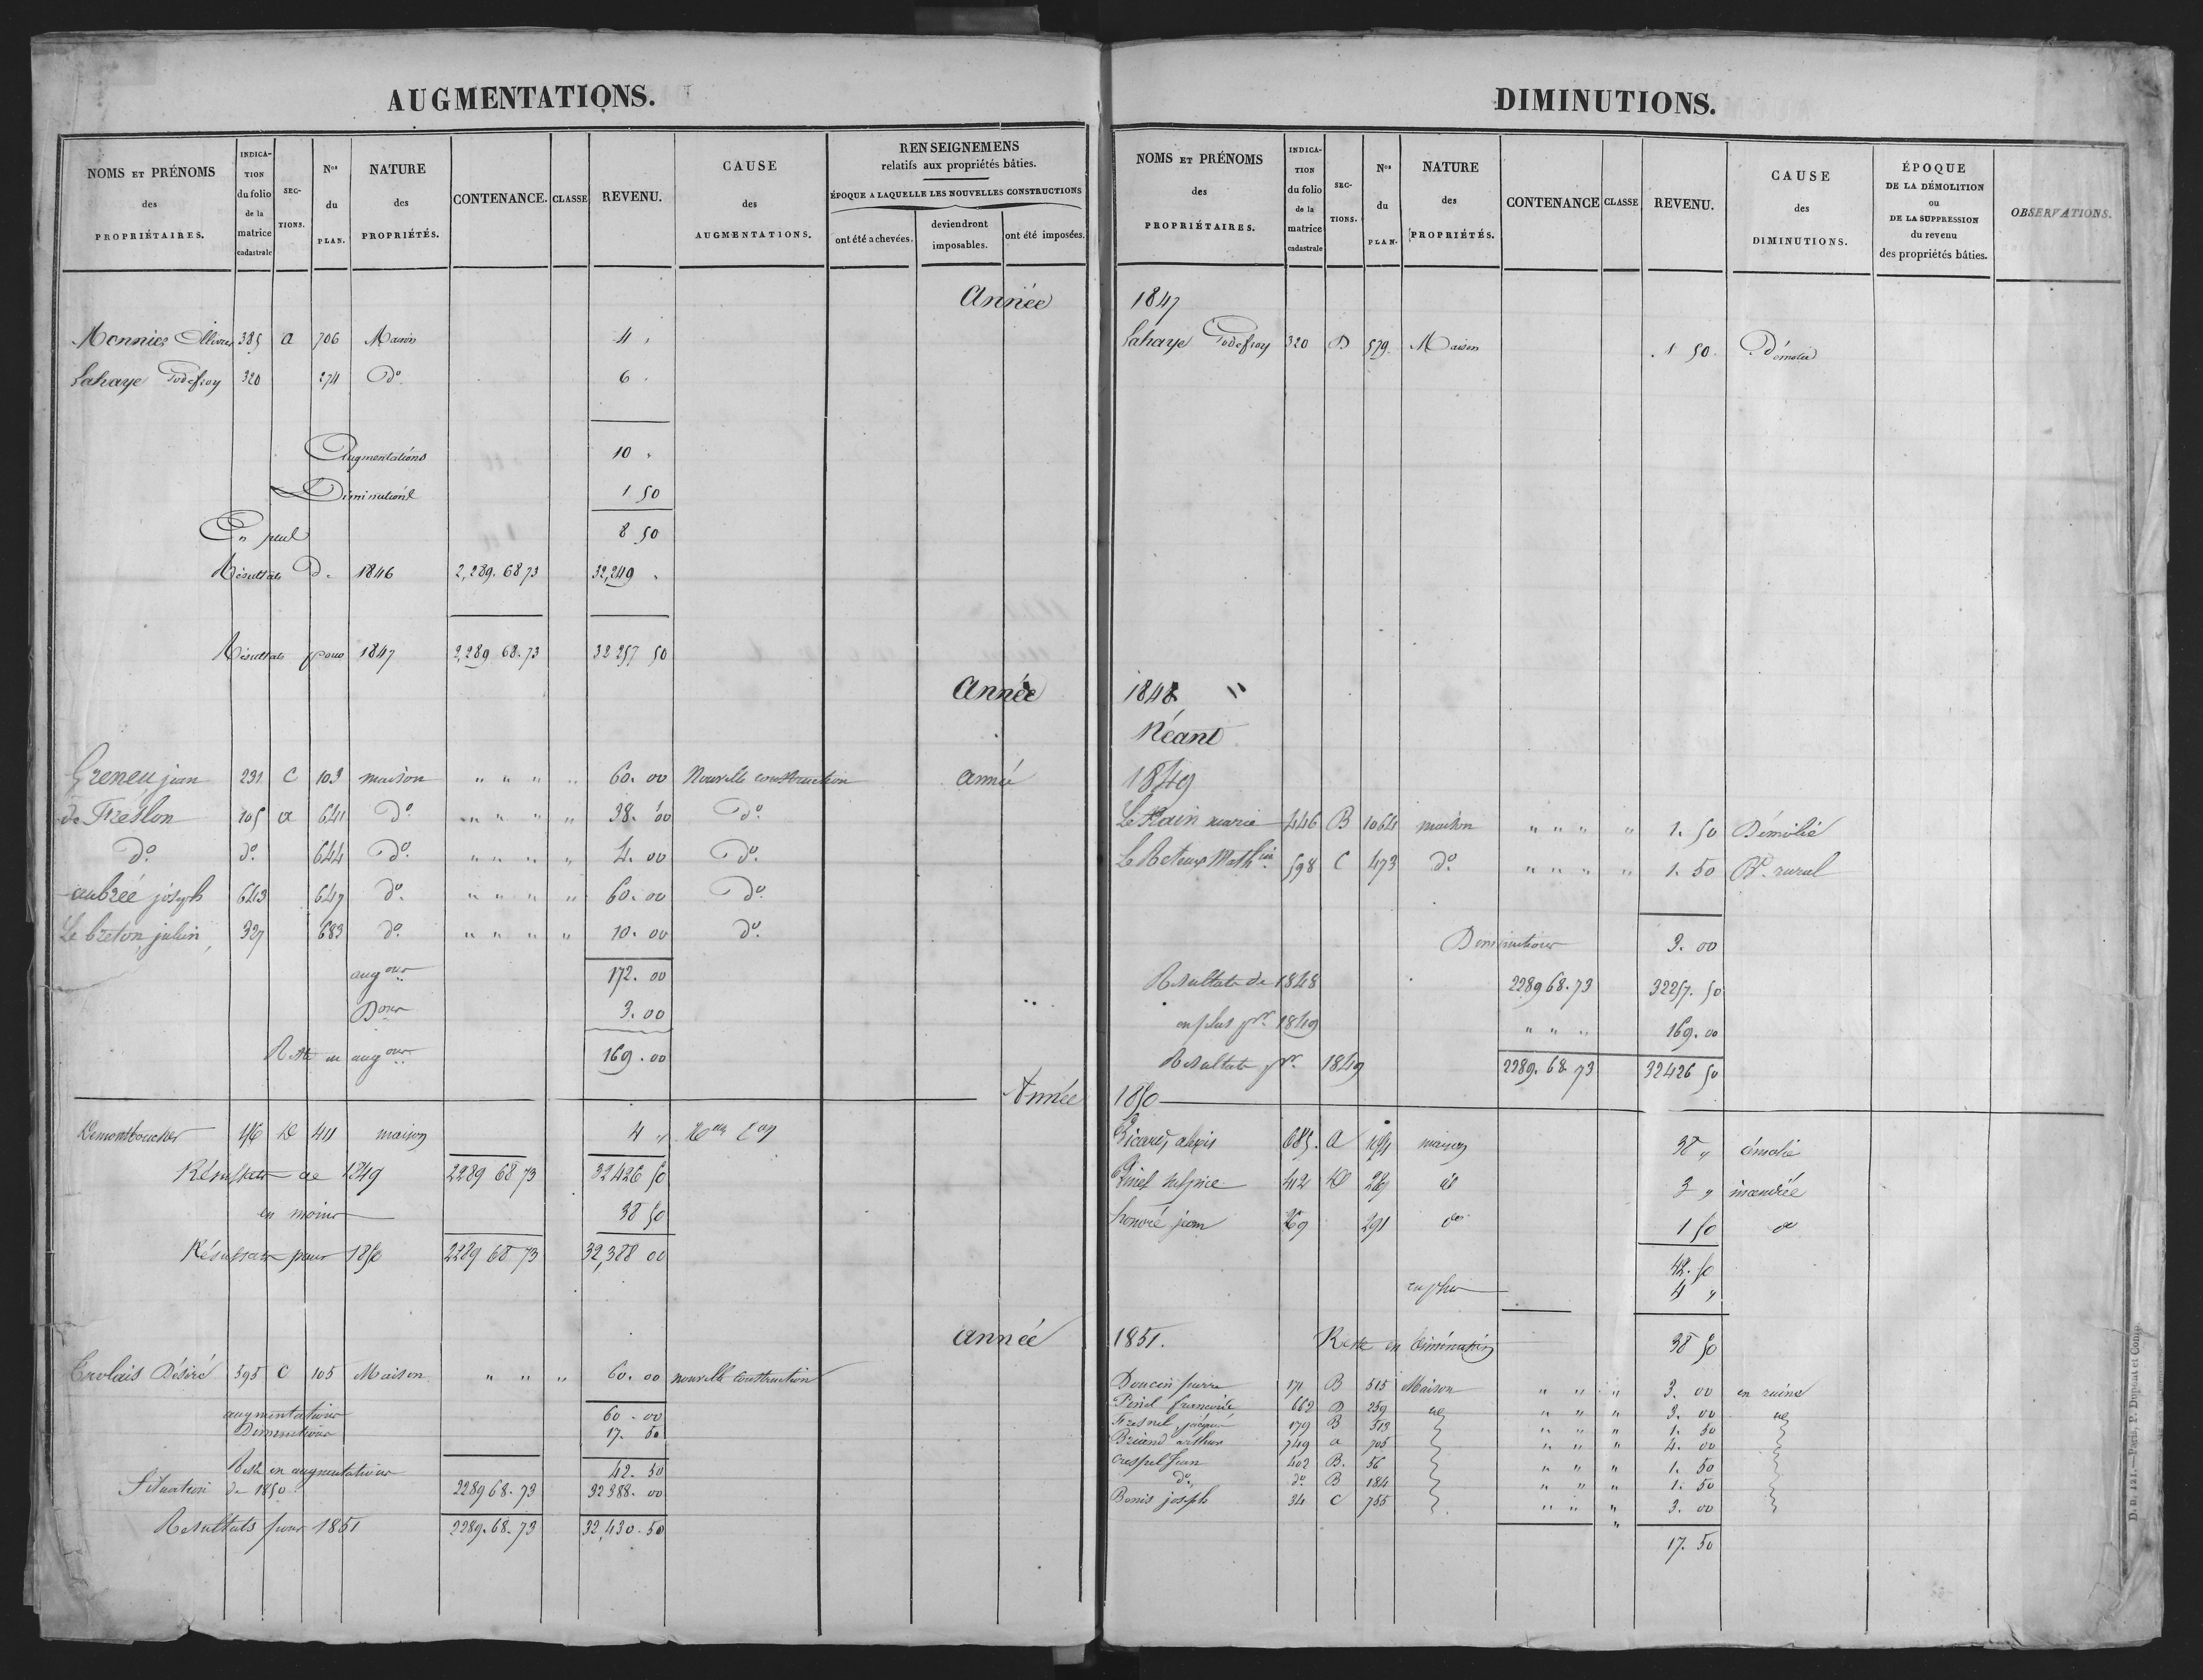 AUGMENTATIONS.
NOMS ET PRÉNOMS des PROPRIÉTAIRES.
INDICATION du folio de la matrice cadastrale
SECTIONS.
Nos du PLAN.
NATURE des PROPRIÉTÉS.
CONTENANCE.
CLASSE
REVENU.
CAUSE des AUGMENTATIONS.
RENSEIGNEMENS relatifs aux propriétés bâties.
ÉPOQUE A LAQUELLE LES NOUVELLES CONSTRUCTIONS
ont été achevées.
deviendront imposables.
ont été imposées.
Année
Monnier 385 a 706 Maison 4 "
Lahaye Godefroy 320 274 do 6 "
Augmentations 10 "
Diminutions 1 50
En plus 8 50
Résultats de 1846 2,289. 68 73 32,249 "
Résultats pour 1847 2,289 68. 73 32 257 50
Année
Greneu jean 231 C 103 maison " " " " 60. 00 Nouvelle construction Année
de Freslon 105 a 641 do " " " " 38. 00 do
do do 644 do " " " " 4. 00 do
aubrée joseph 643 647 do " " " " 60. 00 do
Le breton julien 327 683 do " " " " 10. 00 do
augons 172. 00
Dons 3. 00
Reste en augons 169. 00
Année
Demontboucher D 411 maison 4 "
Résultats de 1849 2289 68 73 32 426 50
en moins 38 50
Résultats pour 1850 2289 68 73 32,388 00
année
Désiré 595 C 105 Maison " " " 60. 00 nouvelle construction
augmentations 60. 00
Diminutions 17. 50
Reste en augmentations 42. 50
Situation de 1850 2289 68. 73 32 388. 00
Resultats pour 1851 2289. 68. 73 32,430. 50
DIMINUTIONS.
NOMS ET PRÉNOMS des PROPRIÉTAIRES.
INDICATION du folio de la matrice cadastrale
SECTIONS.
Nos du PLAN.
NATURE des PROPRIÉTÉS.
CONTENANCE
CLASSE
REVENU.
CAUSE des DIMINUTIONS.
ÉPOQUE DE LA DÉMOLITION ou DE LA SUPPRESSION du revenu des propriétés bâties.
OBSERVATIONS.
1847
Lahaye Godefroy 320 D 579 Maison 1 50 Démolie
1848 "
Néant
1849
marie 446 B 1064 maison " " " " 1. 50 Démolie
598 C 473 do " " " " 1. 50 Bt. rural
Diminutions 3. 00
Resultats de 1848 2289 68. 73 32257. 50
en plus pr. 1849 " " " 169. 00
Resultats pr. 1849 2289. 68. 73 32426 50
1850
Ricard alexis 685. a maison 38 " démolie
Sulpice 412 D id 3 " incendiée
honoré jean 269 291 do 1 50 do
42. 50
en plus 4 "
1851. Reste en diminution 38 50
Doucin pierre 171 B 515 Maison " " " 3. 00 en ruine
Pinel 662 D 239 " " " 3. 00
Fresnel jacques 179 B 513 " " " 1. 50
Briand arthur 749 a 705 " " " 4. 00
crespel Jean 402 B. 56 " " " 1. 50
do do B 184 " " " 1. 50
Bonis joseph 34 C 755 " " " 3. 00
17. 50
D. B. 121. — Paris, P. Dupont et Comp.